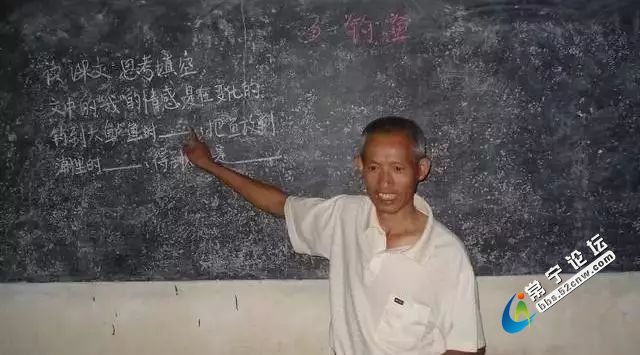 3 钓鱼
读课文 思考填空
文中的"我"的情感是在变化的
钓到大鲈鱼时____,把鱼放到
湖里的____,得 是____
常宁论坛
bbs.52cnw.com